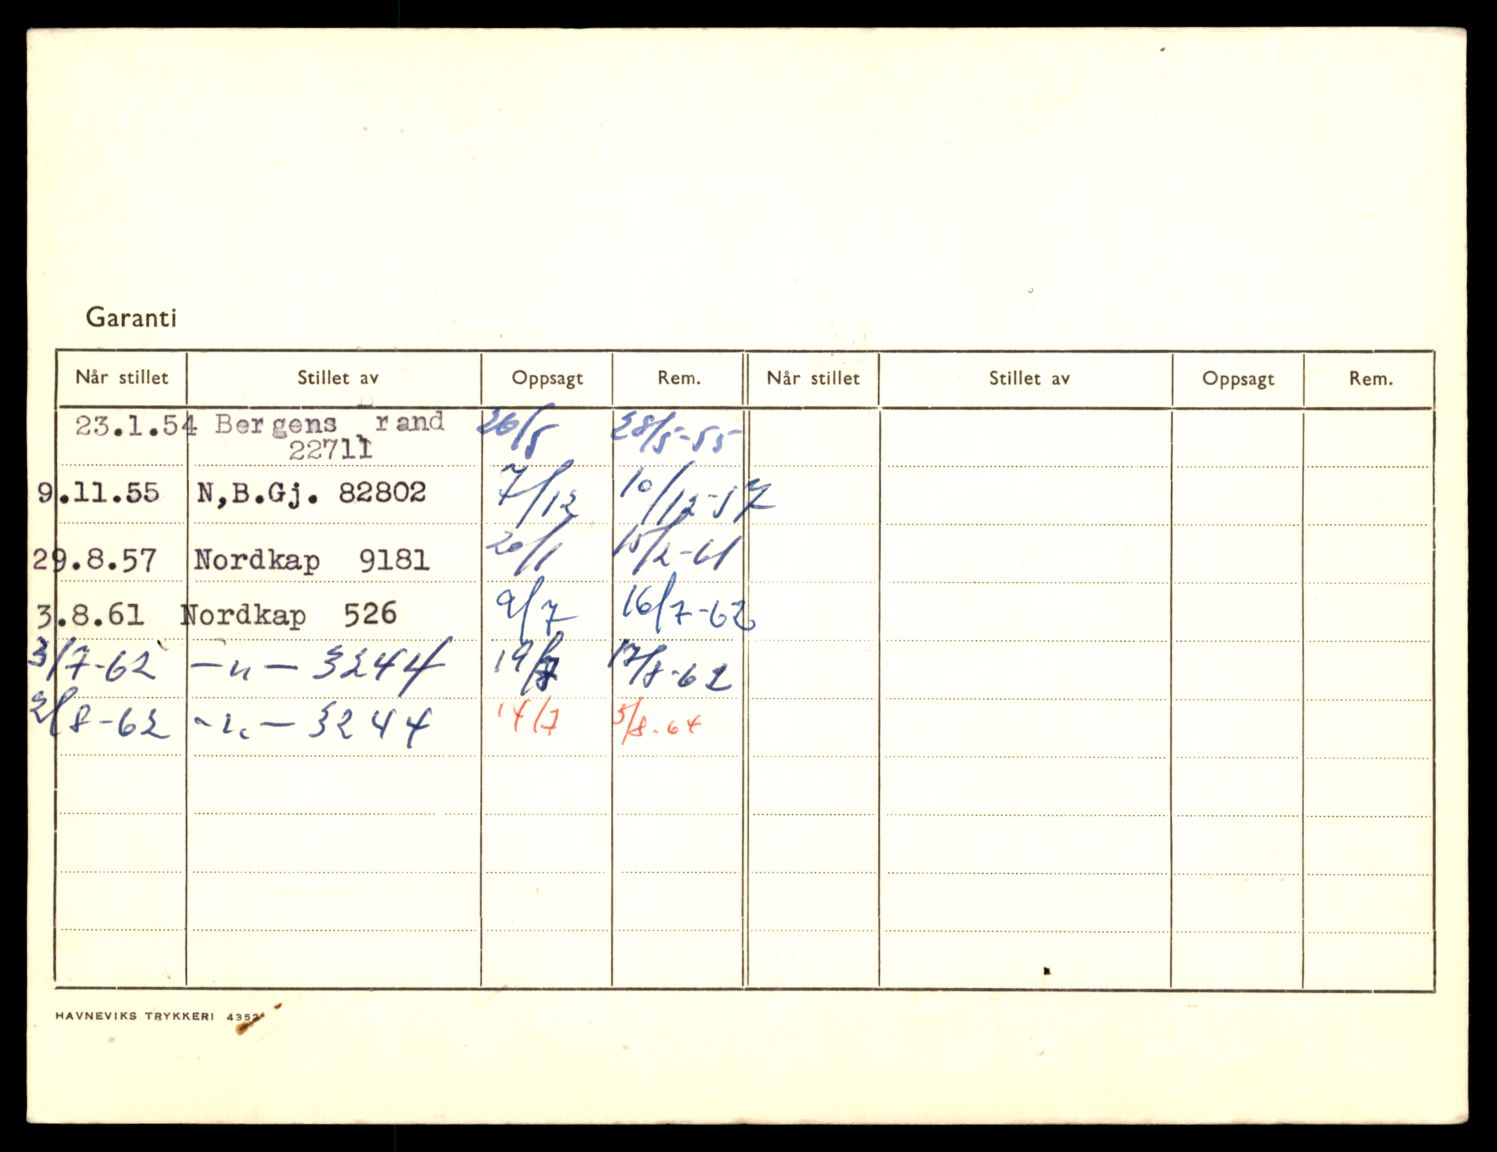 Garanti
Når stillet Stillet av Oppsagt Rem. Når stillet Stillet av Oppsagt Rem.
23.1.54 Bergens rand 26/5 28/5-55
22711
9.11.55 N,B.Gj. 82802 7/12 10/12-57
29.8.57 Nordkap 9181 20/1 15/2-61
3.8.61 Nordkap 526 9/7 16/7-62
3/7-62 -"- 3244 19/8 17/8-62
2/8-62 -"- 3244 14/7 5/8-64
HAVNEVIKS TRYKKERI 4352